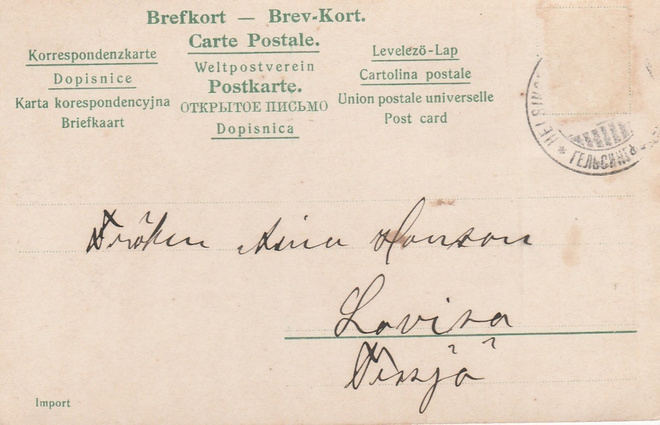 Brefkort — Brev-Kort.
Carte Postale.
Weltpostverein
Postkarte.
ОТКРЫТОЕ ПИСЬМО
Dopisnica
Korrespondenzkarte
Dopisnice
Karta korespondencyjna
Briefkaart
Levelező-Lap
Cartolina postale
Union postale universelle
Post card
Fröken Aina Hanson
Lovisa
Import